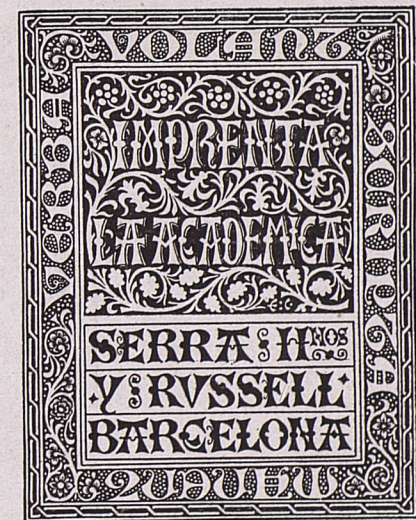 VERBA
VOLANT
SCRIPTA
MANENT
IMPRENTA
LA ACADEMICA
SERRA : HNOS
· Y : RVSSELL ·
BARCELONA